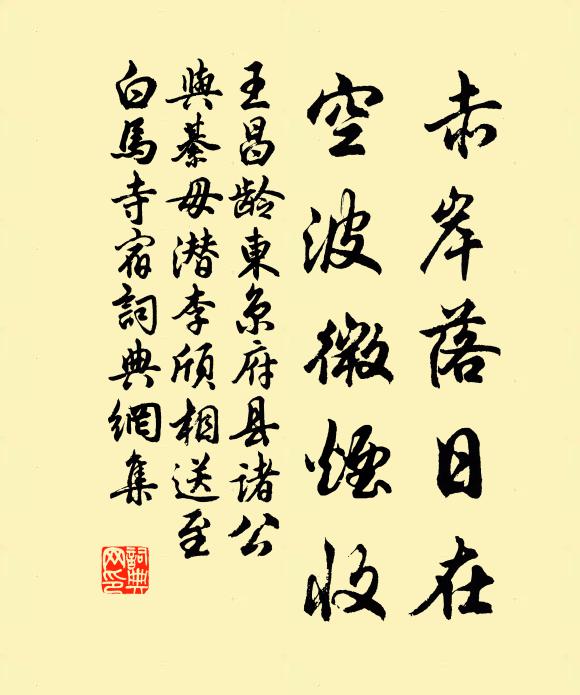 赤岸落日在
空波微煙收
王昌齡東京府县諸公
與綦毋潛李頎相送至
白馬寺宿詞典網集
詞典网印